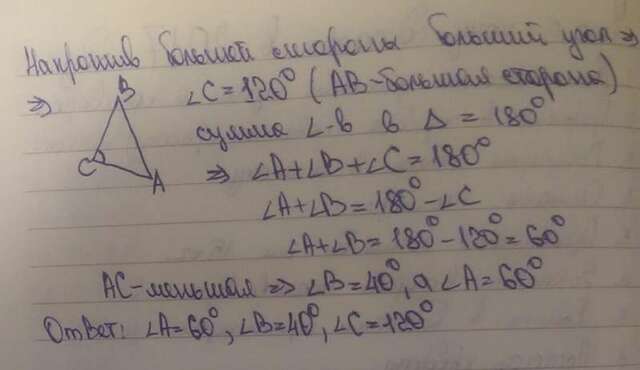 Напротив большой стороны больший угол ⇒
⇒ ∠C = 120° (AB - большая сторона)
B
сумма ∠-в в Δ = 180°
⇒ ∠A + ∠B + ∠C = 180°
C
A
∠A + ∠B = 180° - ∠C
∠A + ∠B = 180° - 120° = 60°
AC - меньшая ⇒ ∠B = 40°, а ∠A = 60°
Ответ: ∠A = 60°, ∠B = 40°, ∠C = 120°